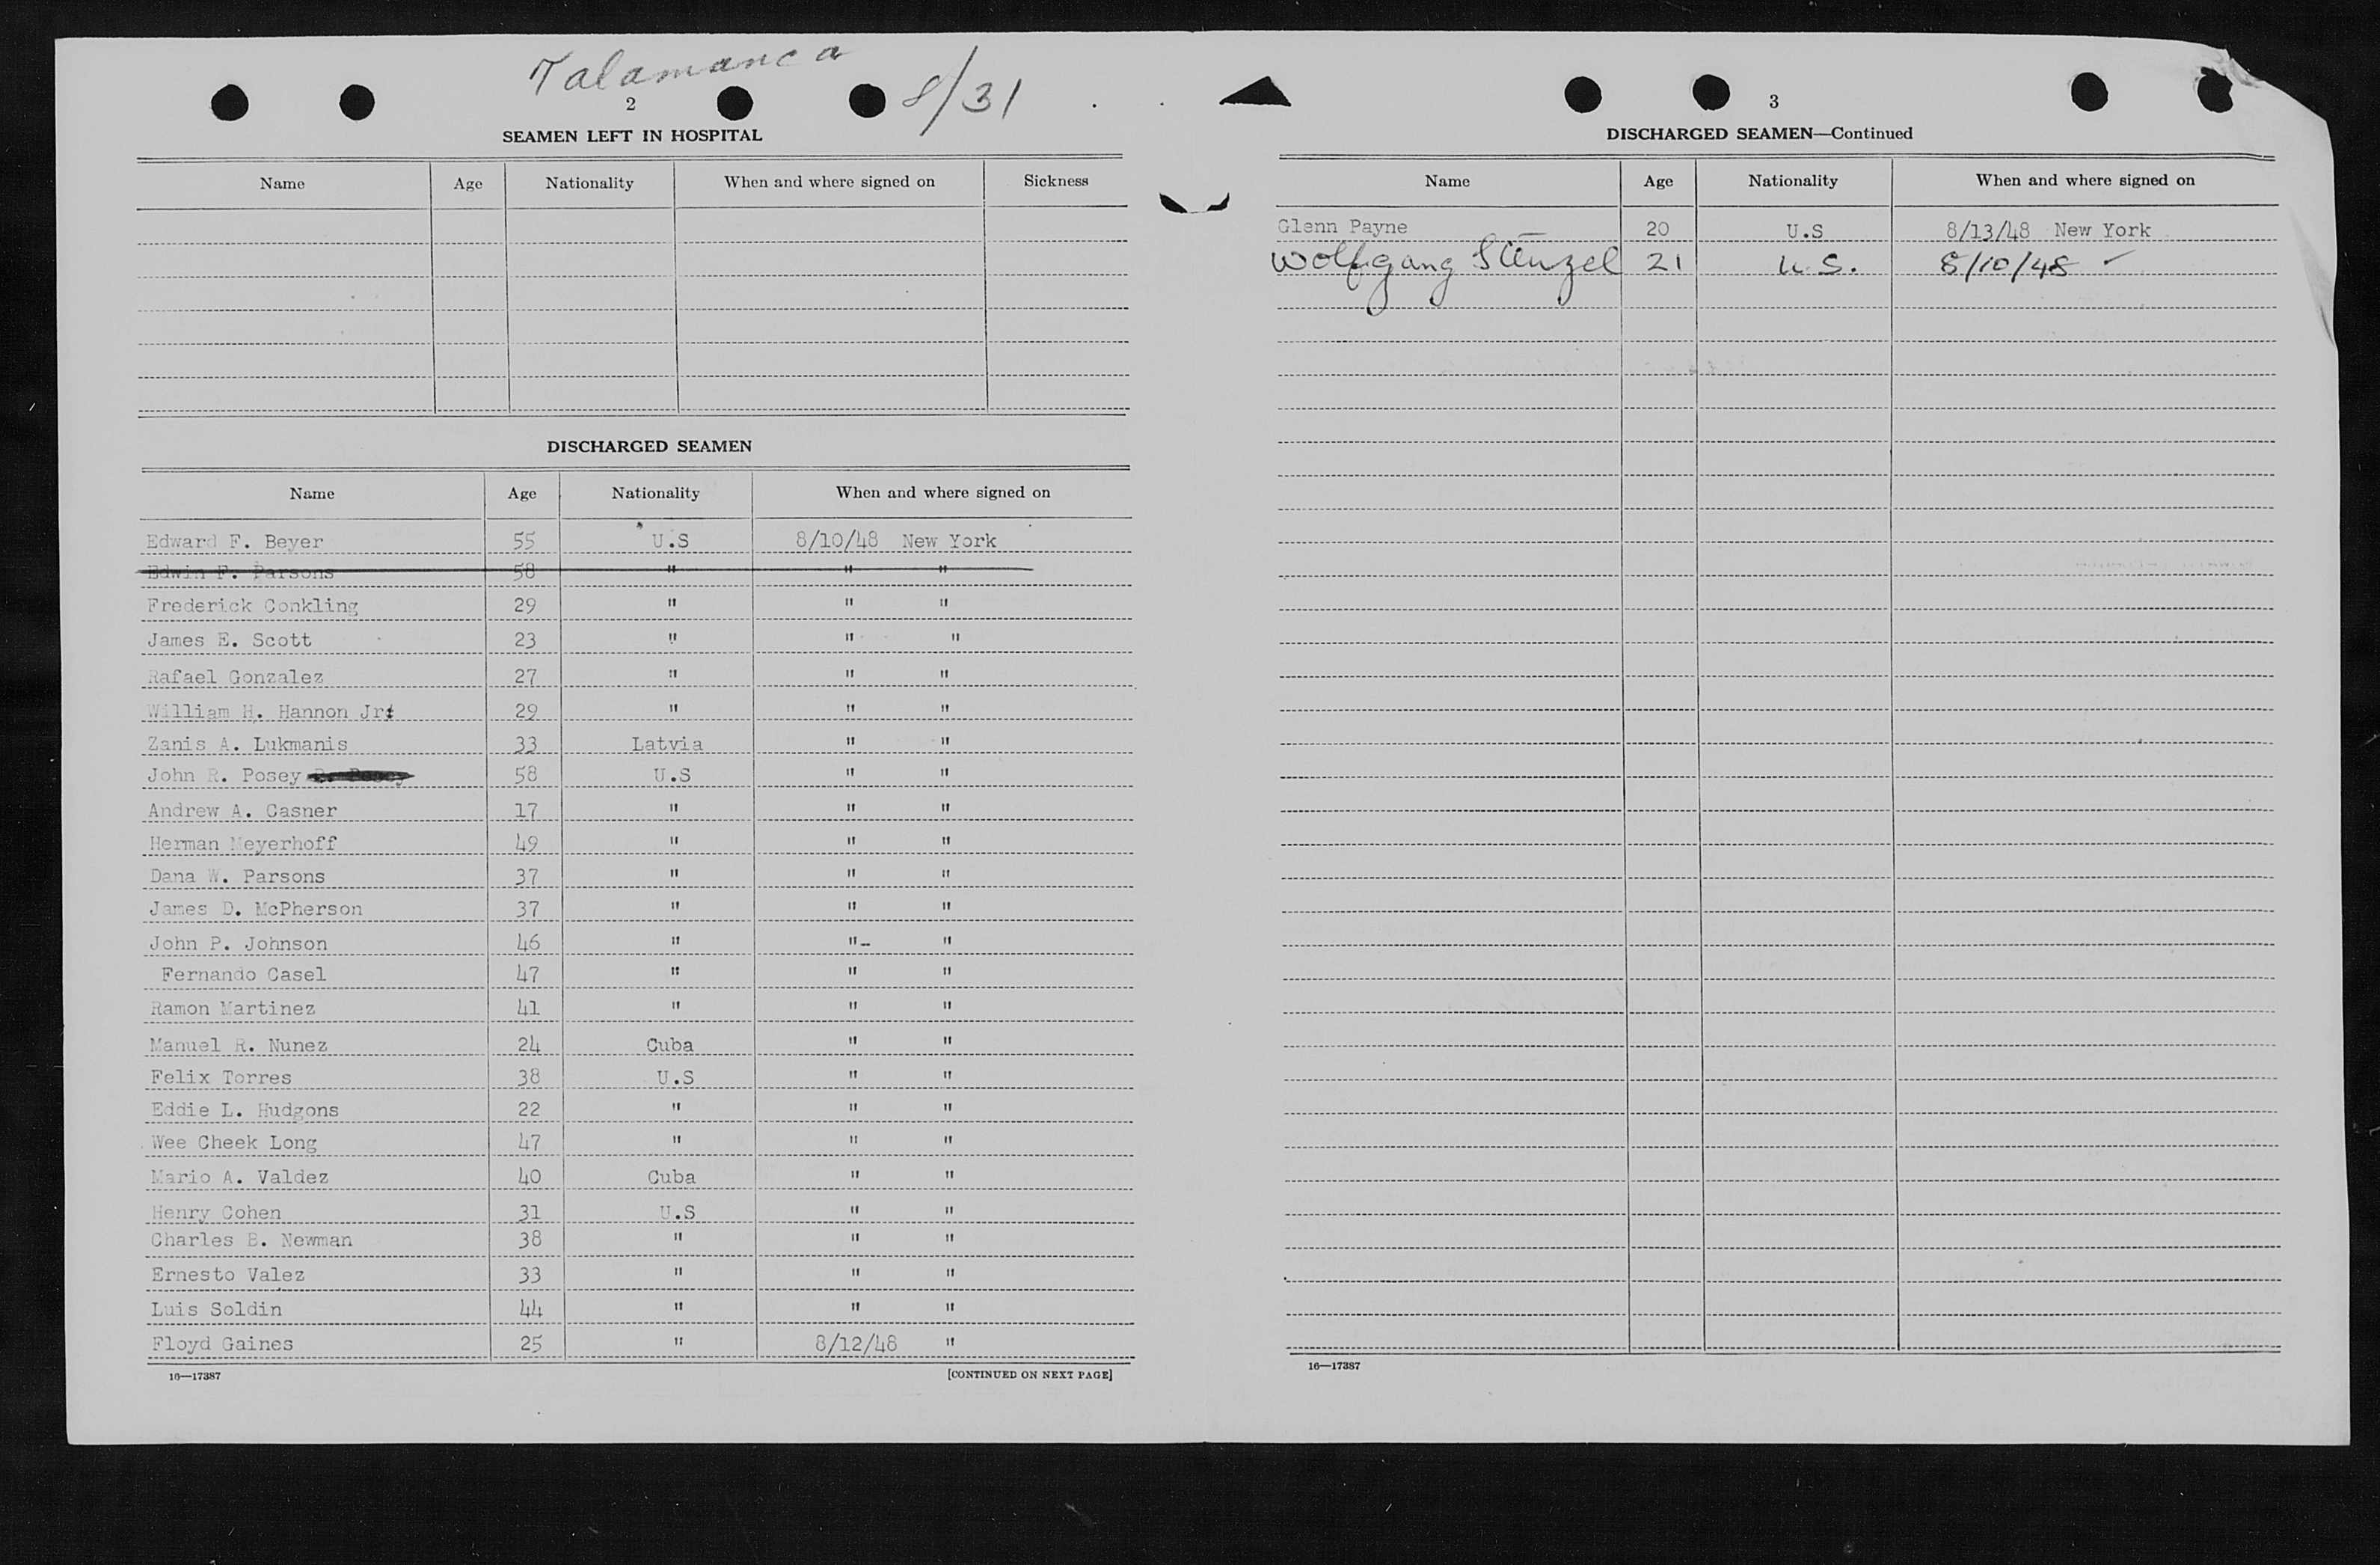 Talamanca
8/31
2
SEAMEN LEFT IN HOSPITAL
Name Age Nationality When and where signed on Sickness
DISCHARGED SEAMEN
Name Age Nationality When and where signed on
Edward F. Beyer 55 U.S 8/10/48 New York
Edwin F. Parsons 58 " " "
Frederick Conkling 29 " " "
James E. Scott 23 " " "
Rafael Gonzalez 27 " " "
William H. Hannon Jr. 29 " " "
Zanis A. Lukmanis 33 Latvia " "
John R. Posey 58 U.S " "
Andrew A. Gasner 17 " " "
Herman Meyerhoff 49 " " "
Dana W. Parsons 37 " " "
James D. McPherson 37 " " "
John P. Johnson 46 " "- "
Fernando Casel 47 " " "
Ramon Martinez 41 " " "
Manuel R. Nunez 24 Cuba " "
Felix Torres 38 U.S " "
Eddie L. Hudgons 22 " " "
Wee Cheek Long 47 " " "
Mario A. Valdez 40 Cuba " "
Henry Cohen 31 U.S " "
Charles B. Newman 38 " " "
Ernesto Valez 33 " " "
Luis Soldin 44 " " "
Floyd Gaines 25 " 8/12/48 "
16—17387 [CONTINUED ON NEXT PAGE]
3
DISCHARGED SEAMEN—Continued
Name Age Nationality When and where signed on
Glenn Payne 20 U.S 8/13/48 New York
Wolfgang Stenzel 21 U.S. 8/10/48
16—17387